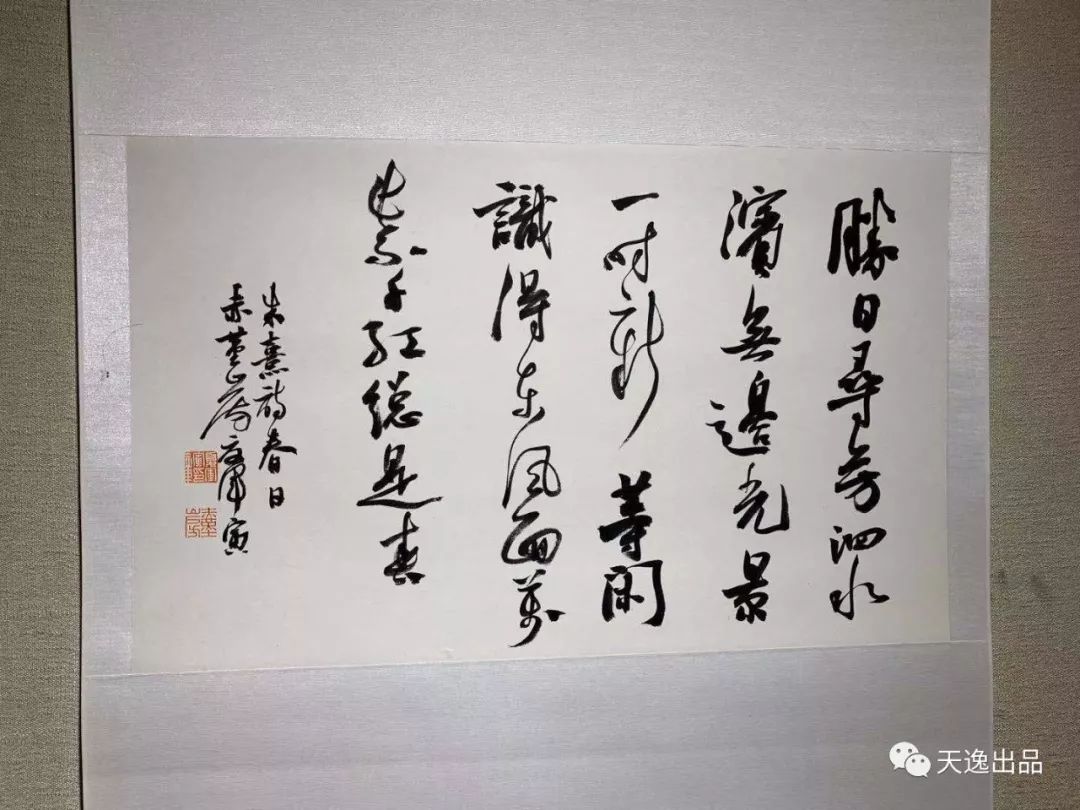 勝日尋芳泗水
濱無邊光景
一時新等閑
識得東風面萬
紫千紅總是春
朱熹詩春日
赤堇山房
天逸出品